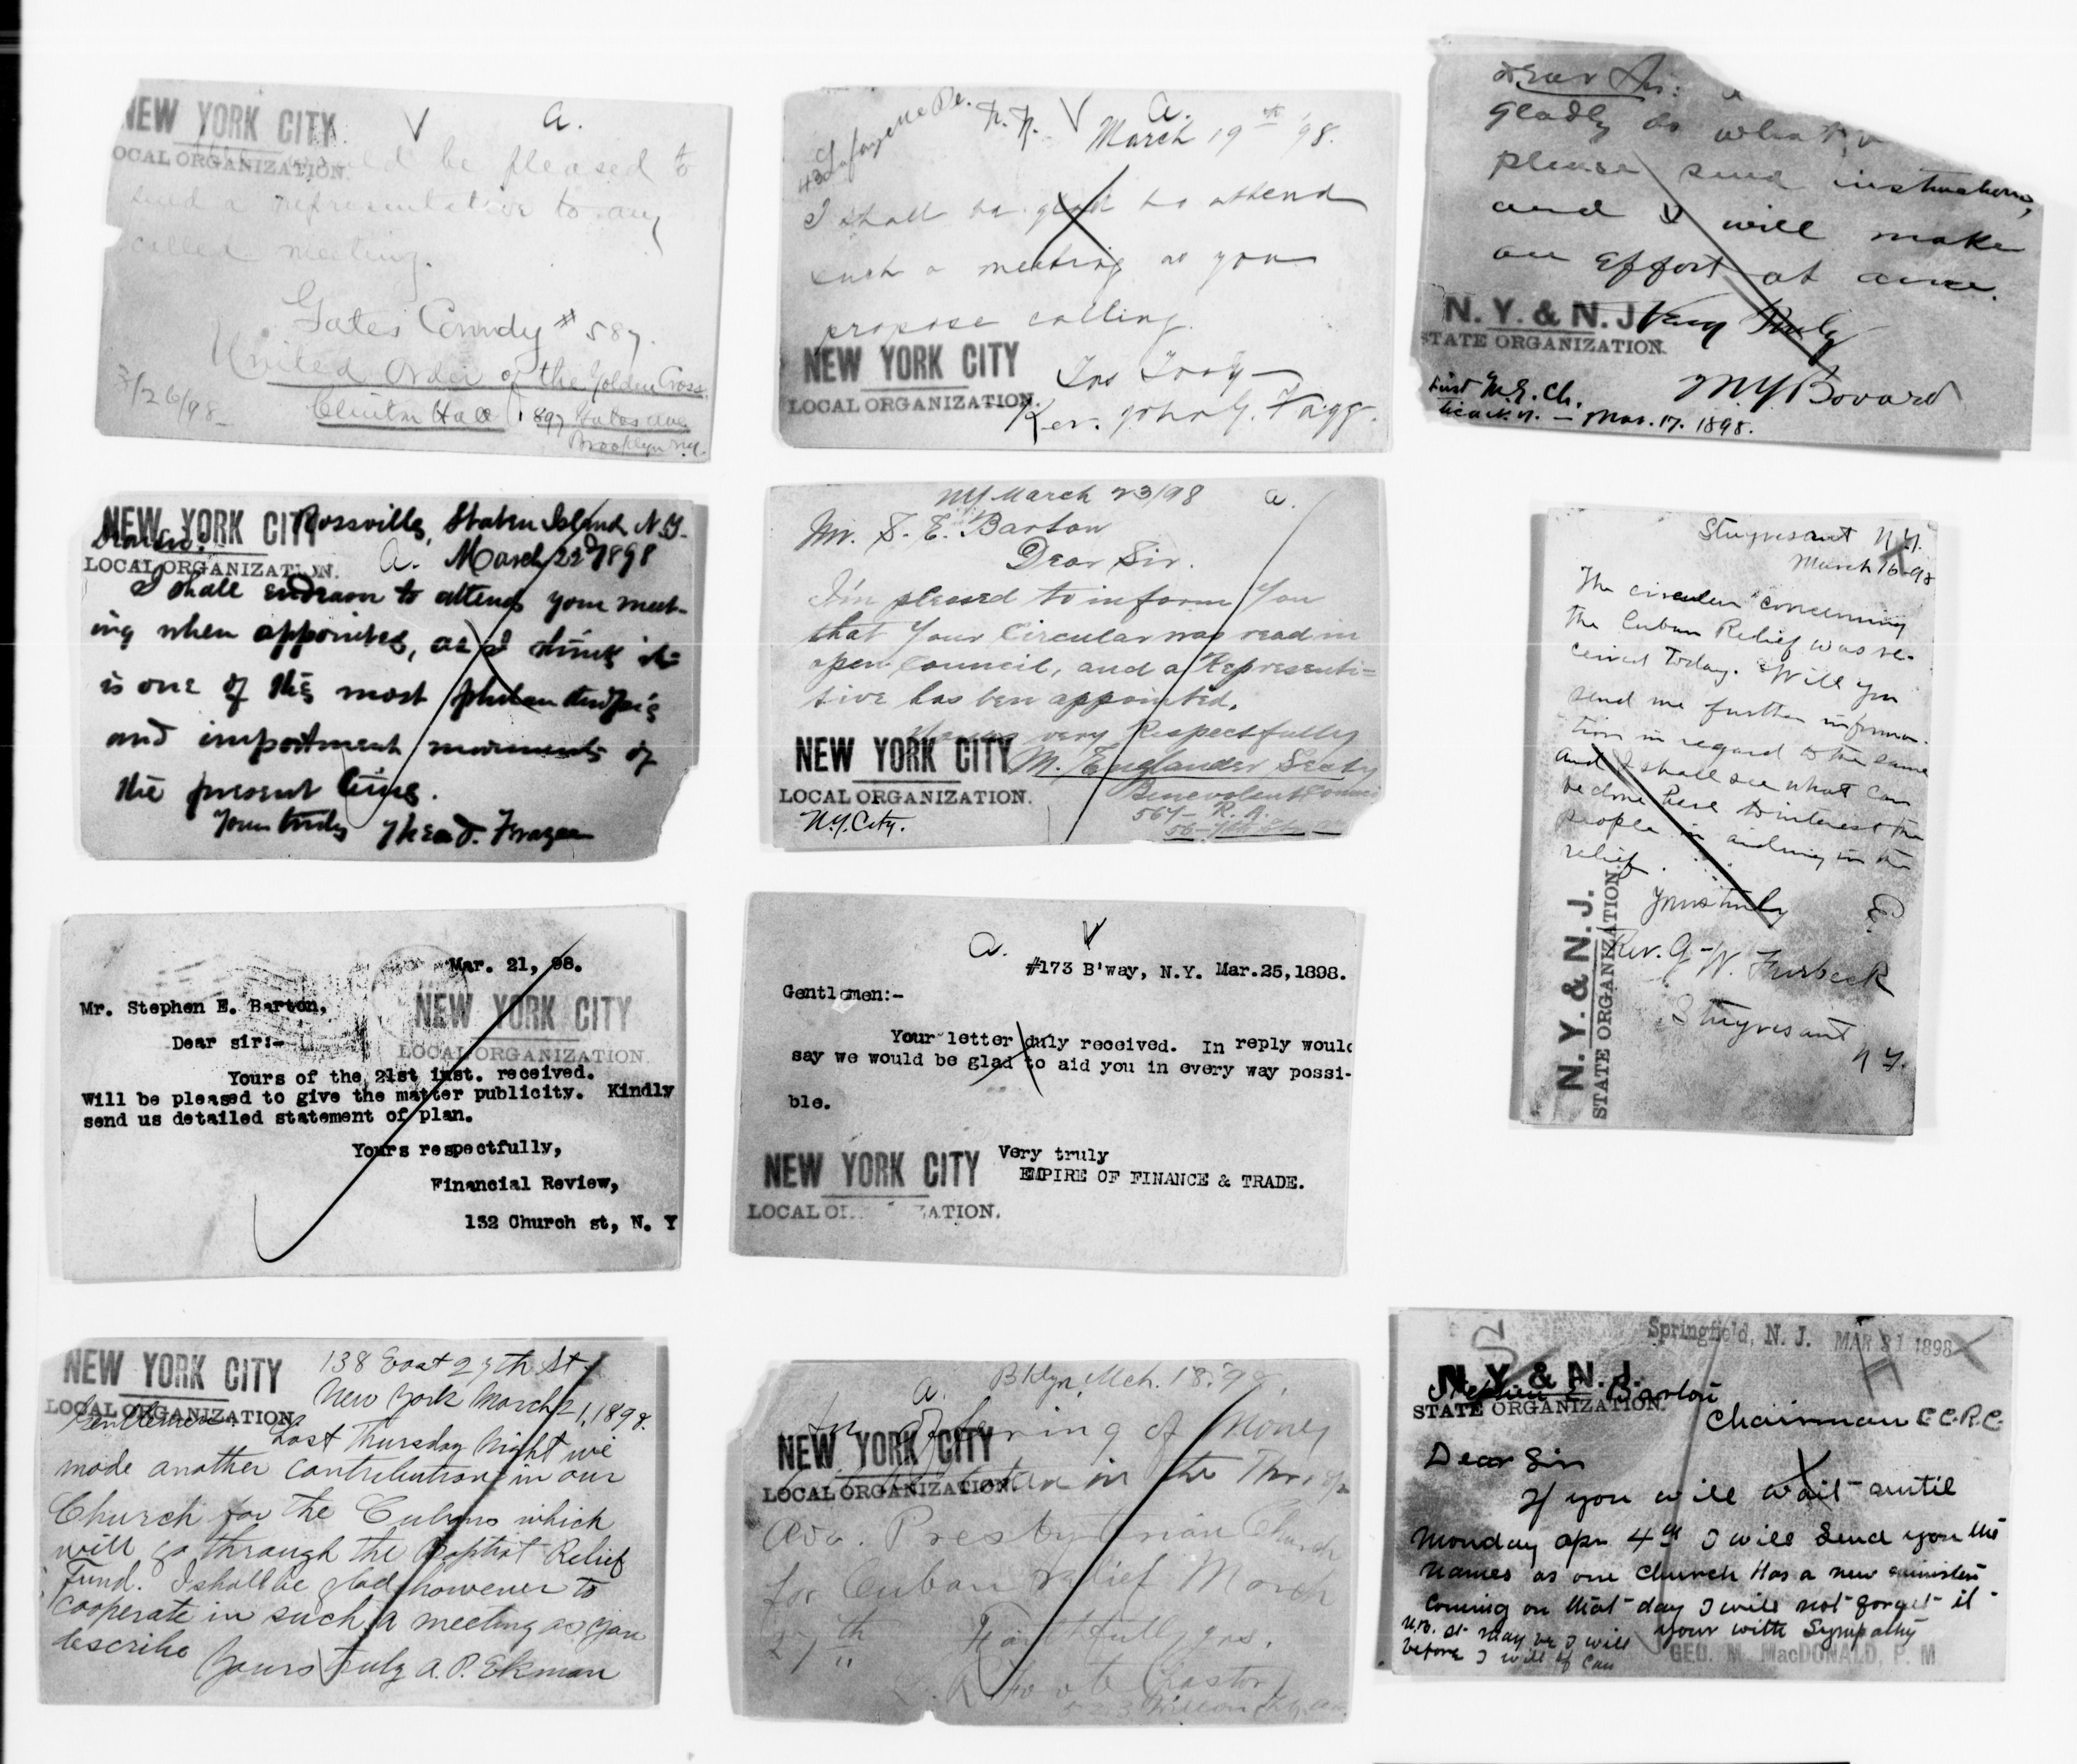 NEW YORK CITY
LOCAL ORGANIZATION.
V a.
be pleased to
send a representative to any
called meeting.
Gates Comndy # 587.
United Order of the Golden Cross
Clinton Hall 897 Gates Ave
Brooklyn N.Y.
3/26/98
43 Lafayette Pl. N.Y. V a.
March 19th '98.
I shall be glad to attend
such a meeting as you
propose calling.
NEW YORK CITY
LOCAL ORGANIZATION.
Yrs Truly
Rev. John G. Fagg.
Dear Sir:
gladly do what
please send instructions,
and I will make
an effort at once.
N. Y. & N. J.
STATE ORGANIZATION.
Very Truly
M Y Bovard
First M.E. Ch.
Mar. 17. 1898.
NEW YORK CITY
LOCAL ORGANIZATION.
Rossville, Staten Island N.Y.
a. March 22d 1898
I shall endeavor to attend your meet-
ing when appointed, as I think it
is one of the most philanthropic
and important movements of
the present time.
Yours truly Thead. Frazee
NY March 23/98 a.
Mr. S. E. Barton
Dear Sir.
I'm pleased to inform You
that Your Circular was read in
open Council, and a Representi=
tive has ben appointed.
Yours very Respectfully
NEW YORK CITY
LOCAL ORGANIZATION.
M. Englander Secty
Benevolent Council
567- R. A.
N.Y. City.
Stuyvesant N.Y.
March 16-98
The circular concerning
the Cuban Relief was re-
ceived today. Will you
send me further informa-
tion in regard to the same
And I shall see what can
be done here to interest the
people in aiding in the
relief.
Yours truly
Rev. G- W. Furbeck
Stuyvesant
N.Y.
N. Y. & N. J.
STATE ORGANIZATION.
Mar. 21, 98.
Mr. Stephen E. Barton,
NEW YORK CITY
LOCAL ORGANIZATION.
Dear sir:-
Yours of the 21st inst. received.
Will be pleased to give the matter publicity. Kindly
send us detailed statement of plan.
Yours respectfully,
Financial Review,
132 Church st, N. Y
a. V
#173 B'way, N.Y. Mar.25,1898.
Gentlemen:-
Your letter duly received. In reply would
say we would be glad to aid you in every way possi-
ble.
Very truly
EMPIRE OF FINANCE & TRADE.
NEW YORK CITY
LOCAL O ATION.
NEW YORK CITY
LOCAL ORGANIZATION.
138 East 27th St
New York March 21, 1898.
Gentlemen:
Last Thursday Night we
made another contribution in our
Church for the Cubans which
will go through the Baptist Relief
Fund. I shall be glad however to
cooperate in such a meeting as you
describe
Yours Truly A. P. Ekman
Bklyn, Mch. 18. 98.
a.
An offering of Money
NEW YORK CITY
LOCAL ORGANIZATION.
in the Throop
Ave. Presbyterian Church
for Cuban relief March
27th
Faithfully yrs.
L. R. Foote (Pastor)
Springfield, N. J. MAR 31 1898
N. Y. & N. J.
STATE ORGANIZATION.
Stephen E Barton
Chairman C.C.R.C.
Dear Sir
If you will wait until
Monday Apr 4th I will Send you the
Names as one Church Has a new minister
Coming on that day I will not forget it
your with Sympathy
N.B. it may be I will
before I will if Can
GEO. M. MacDONALD, P. M